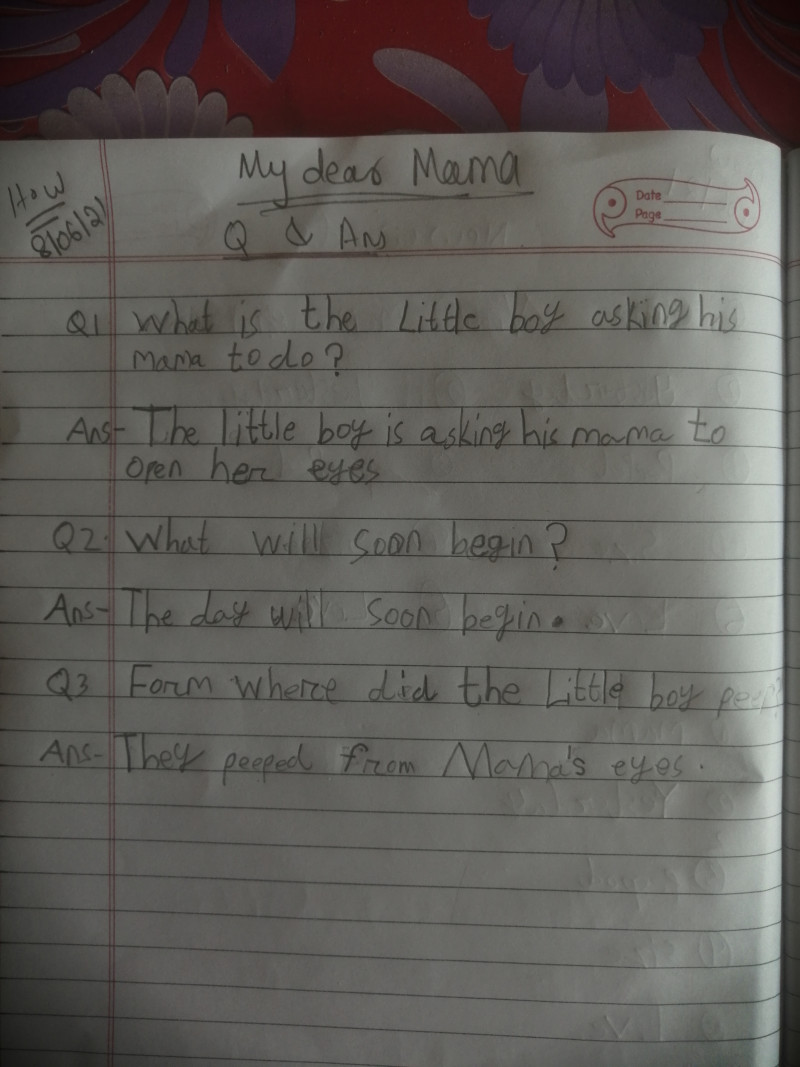 My dear Mama
H.W
8/06/21
Date
Page
Q & Ans
Q1 What is the Little boy asking his
mama to do?
Ans- The little boy is asking his mama to
open her eyes
Q2. What will soon begin?
Ans- The day will soon begin.
Q3 Form where did the Little boy peep?
Ans- They peeped from Mama's eyes.